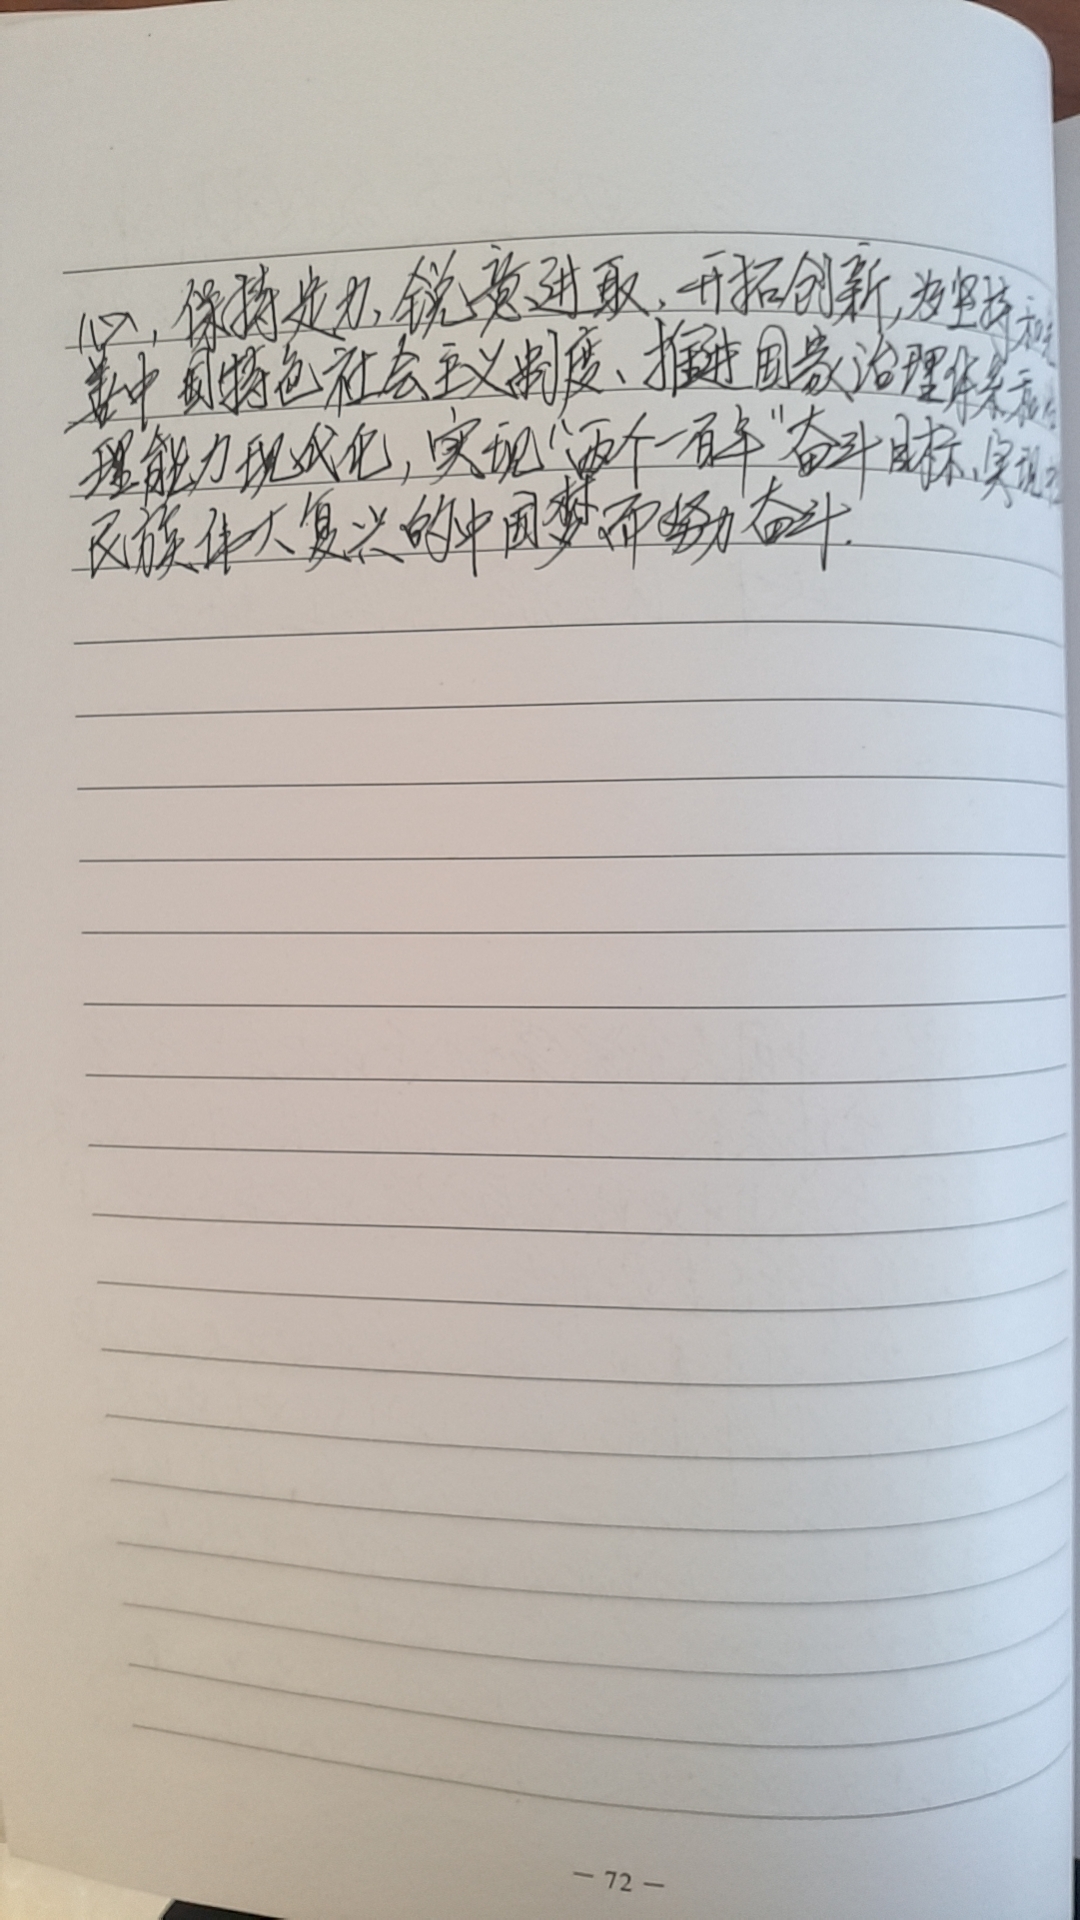 心，保持定力、锐意进取、开拓创新，为坚持和完
善中国特色社会主义制度、推进国家治理体系和治
理能力现代化，实现“两个一百年”奋斗目标、实现中
民族伟大复兴的中国梦而努力奋斗.
— 72 —